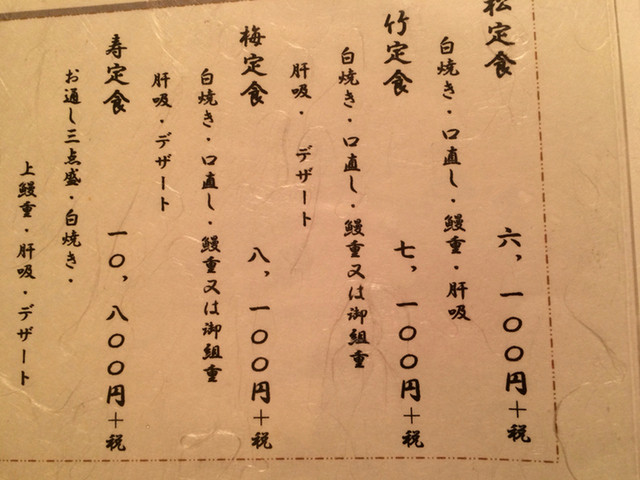 松定食 六、一〇〇円+税
白焼き・口直し・鰻重・肝吸
竹定食 七、一〇〇円+税
白焼き・口直し・鰻重又は御組重
肝吸・デザート
梅定食 八、一〇〇円+税
白焼き・口直し・鰻重又は御組重
肝吸・デザート
寿定食 一〇、八〇〇円+税
お通し三点盛・白焼き・
上鰻重・肝吸・デザート